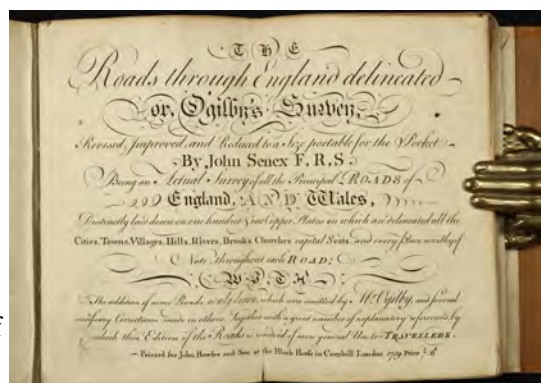 THE
Roads through England delineated
or, Ogilby's Survey,
Revised, Improved, and Reduced to a Size portable for the Pocket
By John Senex F.R.S.
Being an Actual Survey of all the Principal ROADS of
England, AND Wales,
Distinctly laid down on one hundred & one Copper Plates on which are delineated all the
Cities, Towns, Villages, Hills, Rivers, Brooks, Churches capital Seats, and every place worthy of
Note, throughout each ROAD;
WITH
The addition of some Roads newly drawn, which were omitted by Mr. Ogilby, and several
necessary Corrections made in others. Together with a great number of explanatory references, by
which this Edition of the Roads is rendered of more general Use to TRAVELLERS.
Printed for John Bowles and Son at the Black Horse in Cornhill London 1759 Price
f